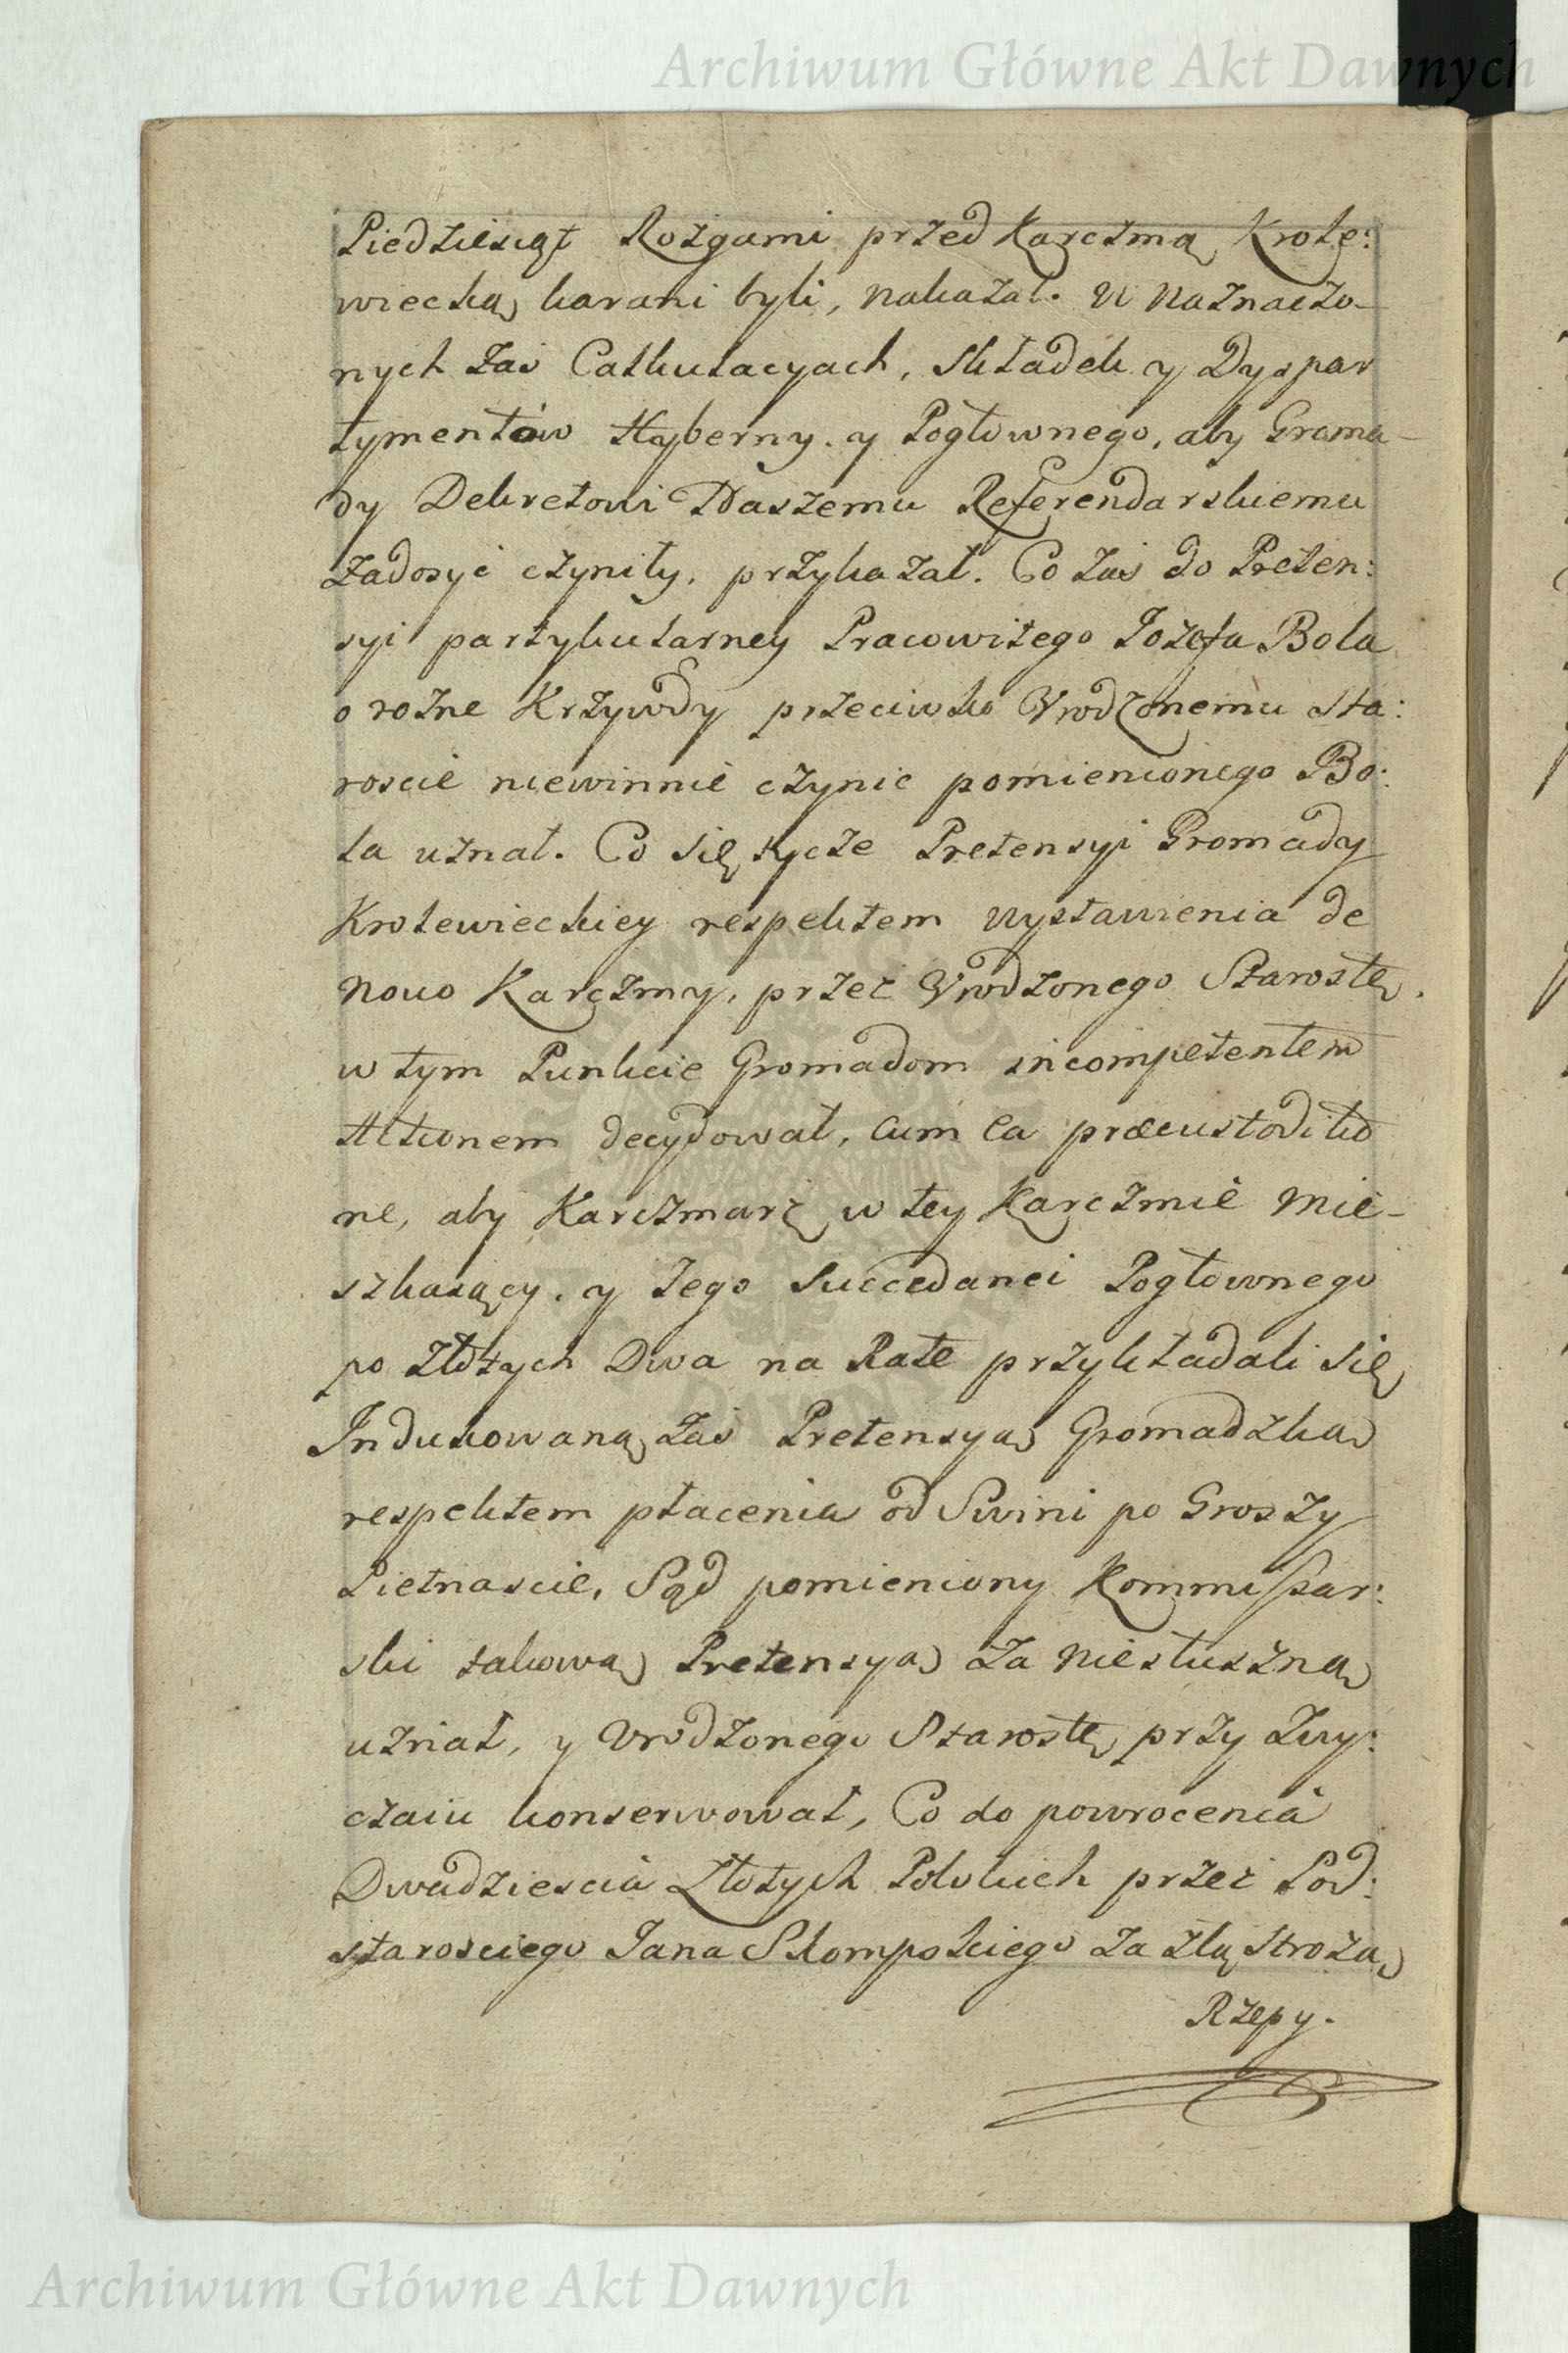 Archiwum Główne Akt Dawnych
Piedziesiąt Rozgami przed Karczmą Krole:
wiecką karani byli, nakazał. W naznaczo-
nych zaś Calkulacyach, składek y Dyspar
tymentów Hyberny y Pogłownego, aby Groma-
dy Dekretowi Naszemu Referendarskiemu
zadosyć czyniły, przykazał. Co zaś do Preten:
syi partykularney Pracowitego Jozefa Bola
o rozne Krzywdy przeciwko Vrodzonemu Sta:
roscie niewinnie czynic pomienionego Bo:
la uznał. Co się tycze Pretensyi Gromady
Krolewieckiey respektem wystawienia de
novo Karczmy, przez Vrodzonego Starostę,
w tym Punkcie Gromadom incompetentem
Actionem decydował, cum ea præcustoditio
ne, aby Karczmarz w tey Karczmie mie-
szkaiący, y Jego Succedanei Pogłownego
po złotych Dwa na Rate przykładali się
Indukowaną zaś Pretensyą Gromadzką
respektem płacenia od Swini po Groszy
Pietnascie, Sąd pomieniony Kommissar:
ski takową Pretensyą za niesłuszną
uznał, y Vrodzonego Starostę przy zwy:
czaiu konserwował, Co do powrocenia
Dwadziescia Złotych Polskich przez Pod:
starosciego Jana Skompskiego za złą strożą
Rzepy.
Archiwum Główne Akt Dawnych